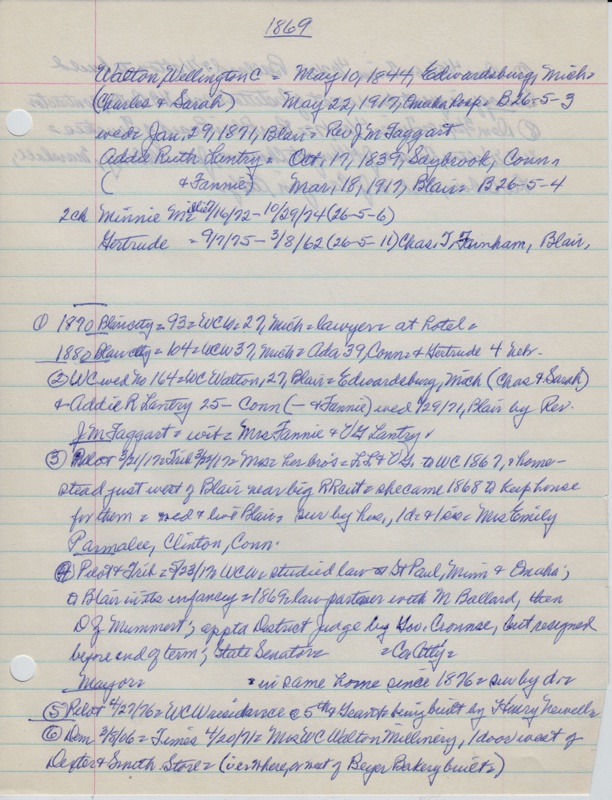 1869
Walton, Wellington C = May 10, 1844, Edwardsburg, Mich=
(Charles & Sarah) May 22, 1917, Omaha Hosp = B26-5-3
wed= Jan. 29, 1871, Blair = Rev J M Taggart
Addie Ruth Lantry = Oct, 17, 1839, Saybrook, Conn,
( & Fannie) Mar, 18, 1917, Blair= B26-5-4
2ch Minnie 7/16/72-10/29/74 (26-5-6)
Gertrude = 9/7/75-3/8/62 (26-5-11) Chas. T. Farnham, Blair,
① 1870 Blair city = 93 = WCW = 27, Mich = lawyer = at hotel =
1880 Blair city = 104 = WCW 37, Mich = Ada 39, Conn = & Gertrude 4 Nebr.
② WC wed No 164 = WC Walton, 27, Blair = Edwardsburg, Mich (Chas & Sarah)
& Addie R Lantry 25 - Conn (- & Fannie) wed 1/29/71, Blair by Rev.
J M Taggart = wit = Mrs Fannie & V G Lantry
③ Pilot 3/21/17 = Trib = Mrs = her bro's = L L & V G, to WC 1867, & home-
stead just west of Blair near big RR cut = she came 1868 to keep house
for them = wed & live Blair = sur by hus, 1 d = & 1 sis = Mrs Emily
Parmalee, Clinton, Conn.
④ Pilot & Trib = 5/23/17, WCW = studied law @ St Paul, Minn & Omaha;
to Blair in its infancy = 1869 = law partner with M Ballard, then
O Z Mummert; apptd District Judge by Gov. Crounse, but resigned
before end of term; State Senator = = Co Atty =
Mayor = = in same home since 1876 = sur by d =
⑤ Pilot 4/27/76 = WCW residence @ 5th & Grant = being built by Henry Newell =
⑥ Dem 3/8/06 = Times 4/20/71 = Mrs WC Walton Millinery, 1 door west of
Dexter & Smith Store = (where, or west of Beyer Bakery built =)